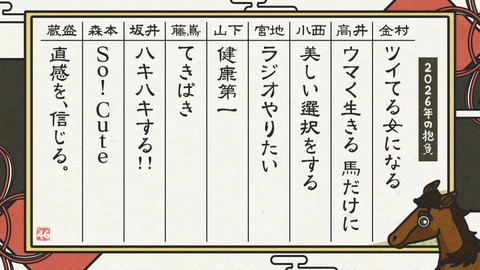 2026年の抱負
金村
ツイてる女になる
高井
ウマく生きる 馬だけに
小西
美しい選択をする
宮地
ラジオやりたい
山下
健康第一
藤嶌
てきぱき
坂井
ハキハキする!!
森本
So! Cute
蔵盛
直感を、信じる。